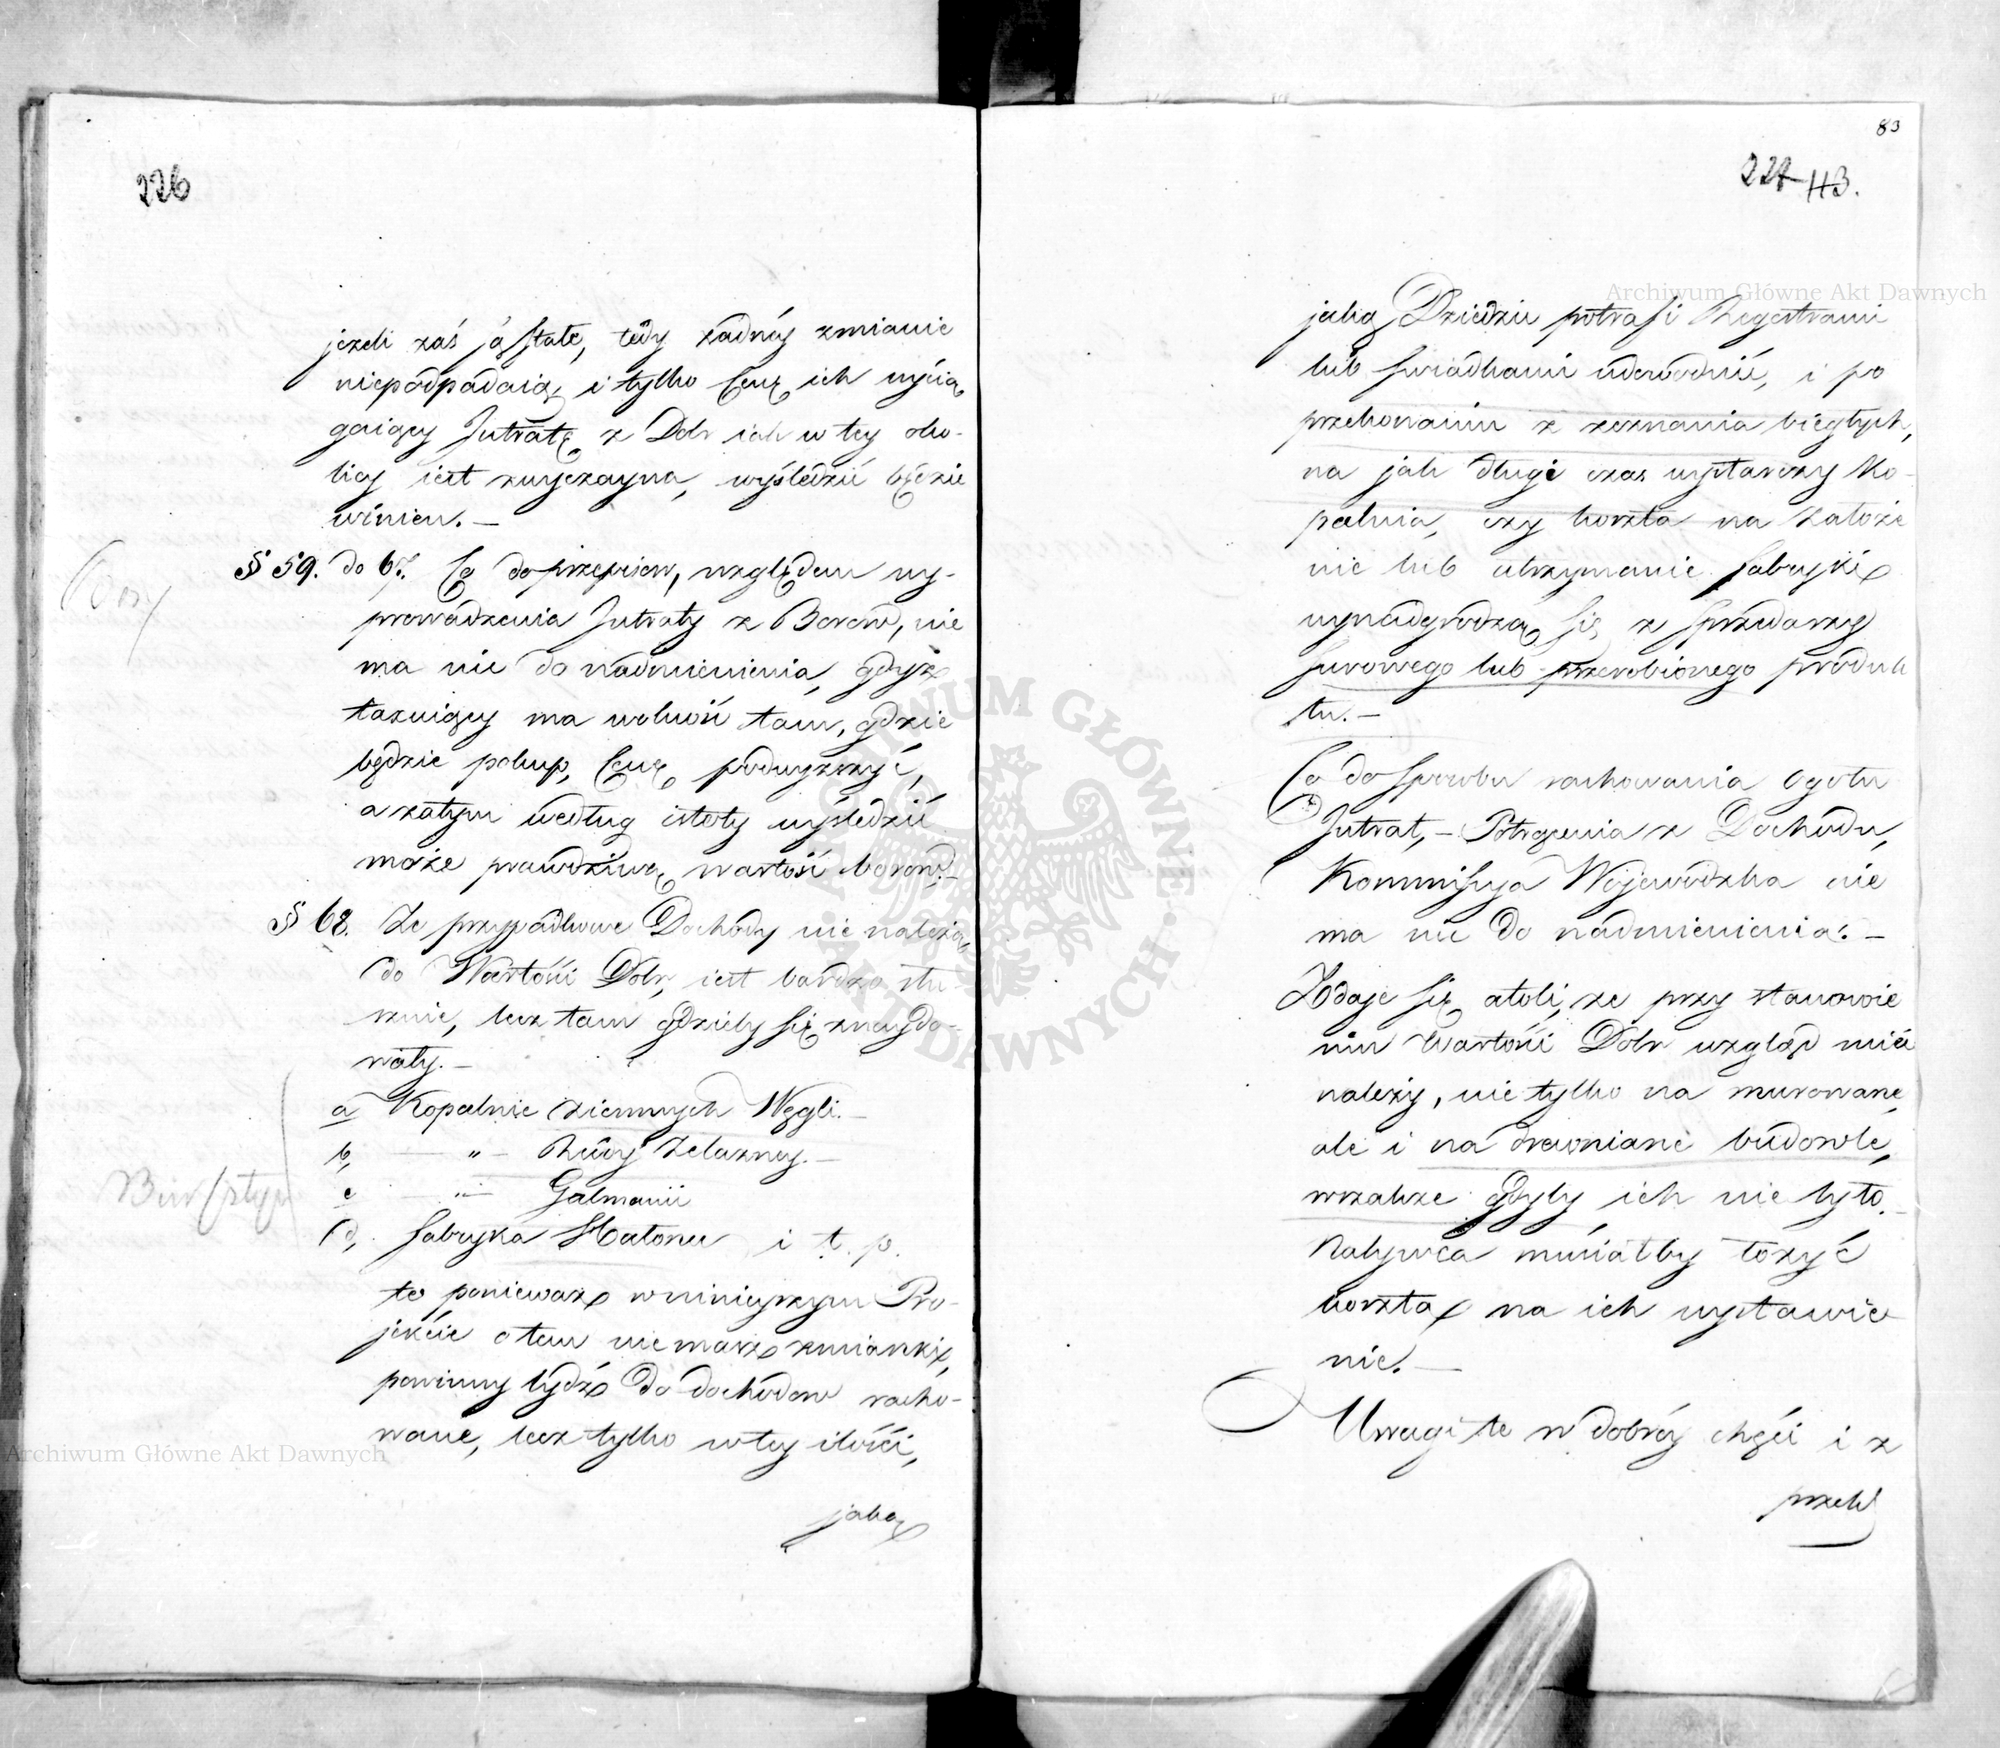 226
jeżeli zaś są stałe, tedy żadnéy zmianie
niepodpadaią, i tylko Cenę ich wycią
gaiący Intratę z Dobr iak w tey oko-
licy iest zwyczayna, wyśledzić będzie
winien. —
§ 59. do 67. Co do przepisow, względem wy-
prowadzenia Intraty z Borow, nie
ma nic do nadmienienia, gdyż
taxuiący ma wolność tam, gdzie
będzie pokup, Cenę podwyższyć,
a zatym według istoty wyśledzić
może prawdziwą wartość borow. —
Bory
§ 68. Że przypadkowe Dochody nie należą
do Wartości Dobr, iest bardzo słu-
sznie, lecz tam gdzieby się znaydo-
wały. —
a Kopalnie ziemnych Węgli. —
b, — „ — Rudy Żelazney. —
c — „ — Galmanii
Bursztyn
d, fabryka Hałunu i t. p.
to ponieważ w ninieyszym Pro-
jekcie o tem nie masz zmianki,
powinny bydź do dochodow racho-
wane, lecz tylko w tey ilości,
jaką
83
227 113.
jaką Dziedzic potrafi Regestrami
lub świadkami udowodnić, i po
przekonaniu z zeznania biegłych,
na jak długi czas wystarczy Ko-
palnia, czy koszta na założe
nie lub utrzymanie fabryki
wynadgrodzą się z sprzedarzy
surowego lub przerobionego produk
tu. —
Co do sposobu rachowania ogołu
Intrat, — Potrącenia z Dochodu,
Kommissya Wojewodzka nie
ma nic do nadmienienia. —
Zdaje się atoli, że przy stanowie
niu Wartości Dobr wzgląd mieć
należy, nie tylko na murowane,
ale i na drewniane budowle,
wszakże gdyby ich nie było,
Nabywca musiałby łożyć
koszta na ich wystawie
nie. —
Uwagi te w dobréy chęci i z
przek
Archiwum Główne Akt Dawnych
Archiwum Główne Akt Dawnych
ARCHIWUM GŁÓWNE · AKT DAWNYCH ·